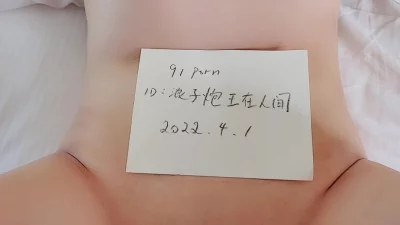 91 porn
ID:浪子炮王在人间
2022.4.1